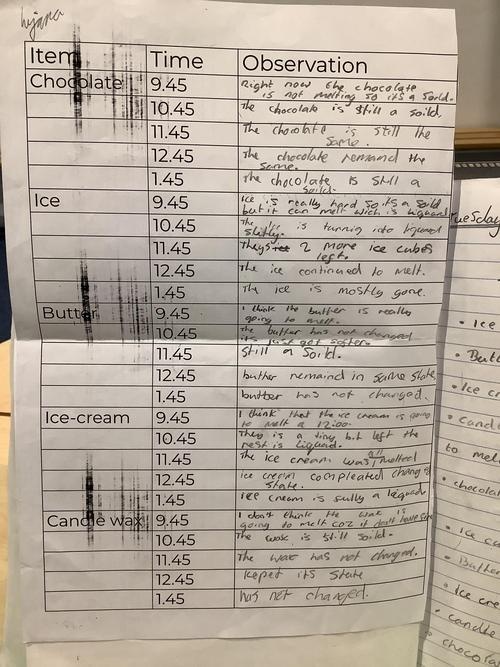 Item Time Observation
Chocolate 9.45 Right now the chocolate
is not melting so it's a Soild.
10.45 The chocolate is still a soild,
11.45 The chocolate is still the
Same.
12.45 The chocolate remaind the
Same.
1.45 The chocolate is still a
Soild.
Ice 9.45 Ice is really hard so its a soild
but it can melt wich is liquard
10.45 The Ice is turnig into liquard
slitly.
11.45 Theys 2 more ice cubes
left.
12.45 The ice continued to melt.
1.45 The ice is mostly gone.
Butter 9.45 I think the butter is really
going to melt.
10.45 The butter has not changed
its just got softer.
11.45 Still a Soild.
12.45 butter remaind in same state
1.45 butter has not changed.
Ice-cream 9.45 I think that the ice cream is going
to melt a 12:00.
10.45 Theys is a tiny bit left the
rest is liquad.
11.45 The ice cream was all melted
12.45 ice cream compleated change
State.
1.45 ice cream is fully a liquad
Candle wax 9.45 I don't think the wax is
going to melt coz it don't have
10.45 The wax is still soild.
11.45 The wax has not changed.
12.45 kepet its state
1.45 has not changed.
Tuesday
• Ice
• Butt
• Ice cr
• cand
to mel
• chocola
• Ice cu
• Butter
• Ice cre
• candle
• chocola